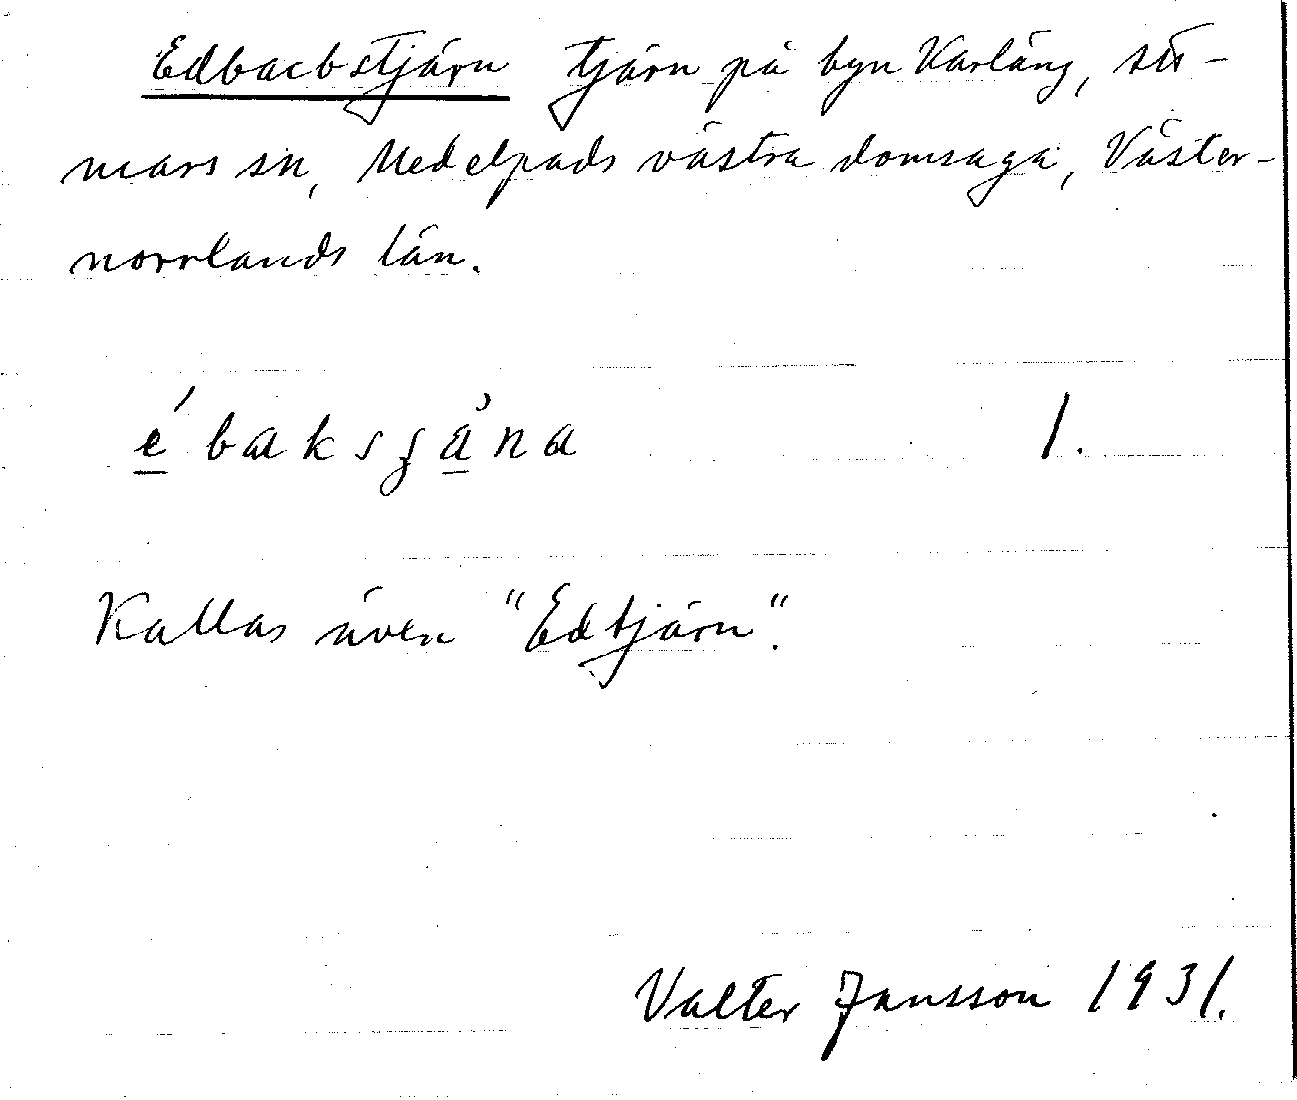 Edbackstjärn tjärn på byn Karläng, Stö-
mars sn, Medelpads västra domsaga, Väster-
norrlands län.
é baksʒána 1.
Kallas även "Edtjärn".
Valter Jansson 1931.